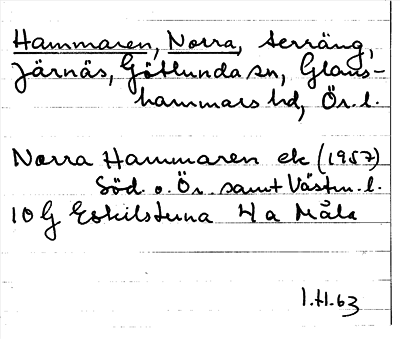 Hammaren, Norra, terräng,
Järnäs, Götlunda sn, Glans-
hammars hd, Ör. l.
Norra Hammaren ek (1957)
Söd. o. Ör. samt Västm. l.
10 G Eskilstuna 4 a Måla
1.H.63